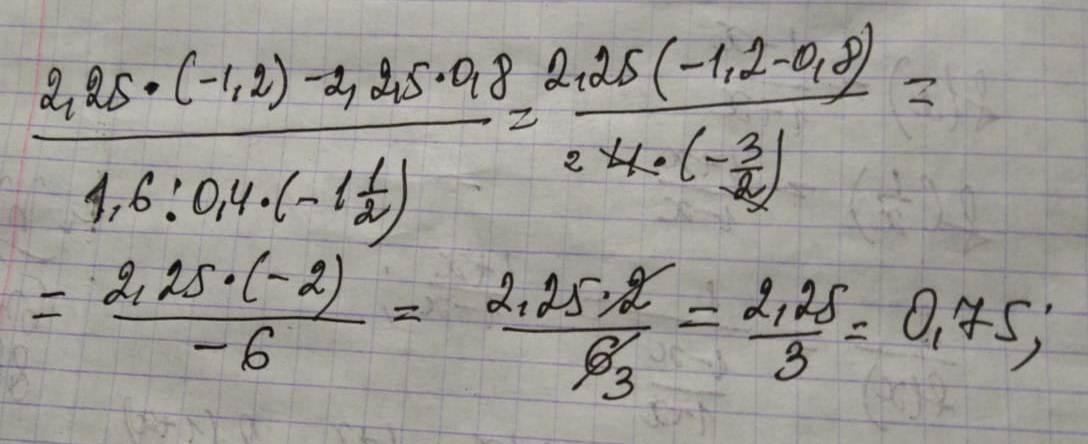 2,25·(-1,2)-2,25·0,8 / 1,6:0,4·(-1 1/2) = 2,25(-1,2-0,8) / 2 4·(-3/2) =
= 2,25·(-2) / -6 = 2,25·2 / 6 3 = 2,25 / 3 = 0,75;